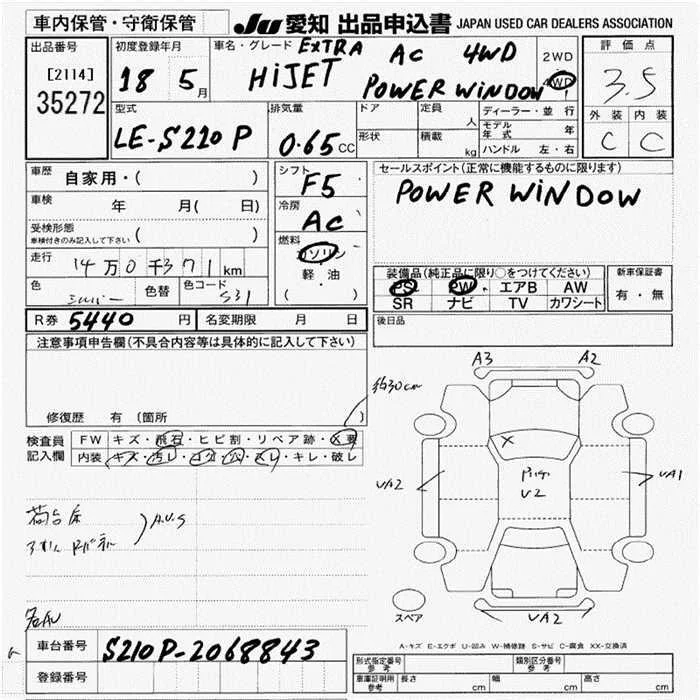 車内保管・守衛保管 JU 愛知 出品申込書 JAPAN USED CAR DEALERS ASSOCIATION
出品番号
[2114]
35272
初度登録年月
18 5月
車名・グレード EXTRA AC 4WD
HIJET POWER WINDOW
2WD
4WD
評価点
3.5
外装 内装
C C
型式
LE-S210P
排気量
0.65CC
ドア
形状
定員 人
積載 kg
ディーラー・並行
モデル年式 年
ハンドル 左・右
車歴 自家用・( )
車検 年 月( 日)
受検形態
車検付きのみ記入して下さい ( )
走行 14万0千371km
色 シルバー 色替 色コード S31
シフト
F5
冷房
AC
燃料
ガソリン
軽・油
( )
セールスポイント(正常に機能するものに限ります)
POWER WINDOW
装備品(純正品に限り○をつけてください)
PS PW エアB AW
SR ナビ TV カワシート
新車保証書
有・無
R券 5440円 名変期限 月 日
後日品
注意事項申告欄(不具合内容等は具体的に記入して下さい)
修復歴 有 〔箇所 〕
検査員記入欄
FW キズ・飛石・ヒビ割・リペア跡・X要
内装 キズ・汚レ・コゲ・穴・スレ・キレ・破レ
荷台床
A3 A2
約30cm
X
UA2
UA1
U2
UA2
スペア
A-キズ E-エクボ U-凹み W-補修跡 S-サビ C-腐食 XX-交換済
車台番号 S210P-2068843
登録番号
形式指定番号 参考
類別区分番号 参考
車庫証明用 参考 長さ cm 幅 cm 高さ cm